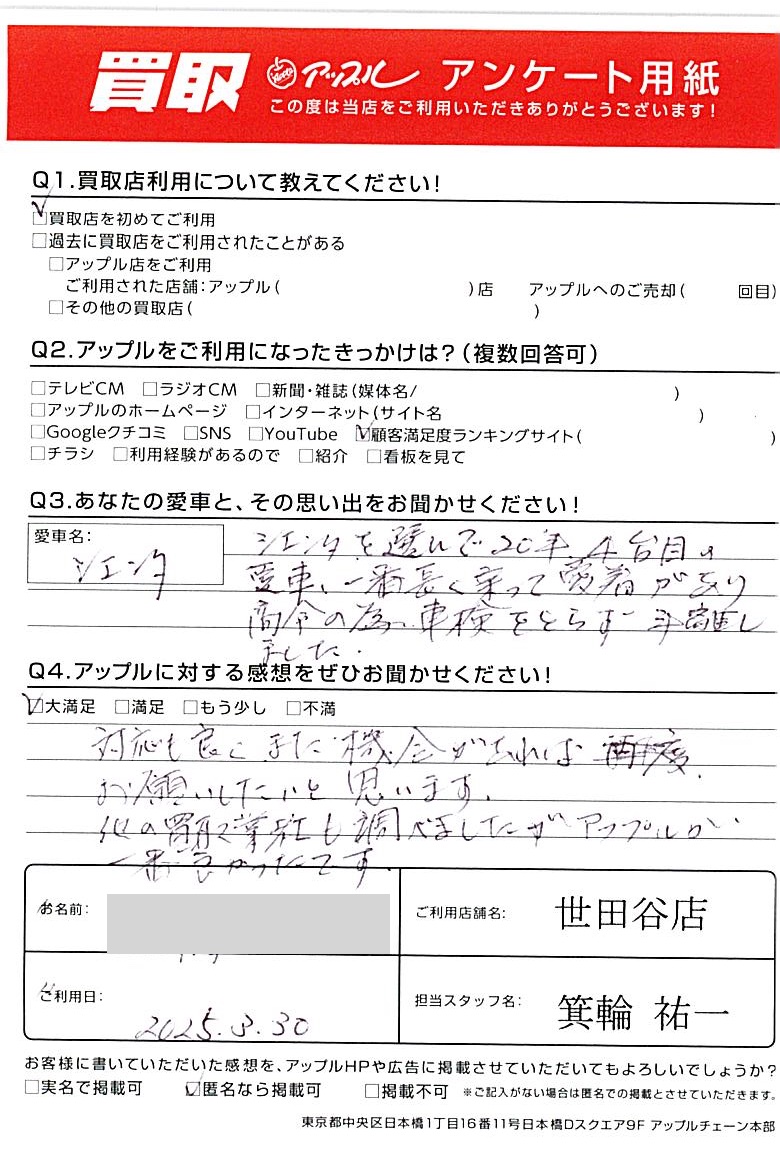 買取 Apple アップル アンケート用紙
この度は当店をご利用いただきありがとうございます!
Q1.買取店利用について教えてください!
☑買取店を初めてご利用
□過去に買取店をご利用されたことがある
□アップル店をご利用
ご利用された店舗:アップル( )店 アップルへのご売却( 回目)
□その他の買取店( )
Q2.アップルをご利用になったきっかけは?(複数回答可)
□テレビCM □ラジオCM □新聞・雑誌(媒体名/ )
□アップルのホームページ □インターネット(サイト名 )
□Googleクチコミ □SNS □YouTube ☑顧客満足度ランキングサイト( )
□チラシ □利用経験があるので □紹介 □看板を見て
Q3.あなたの愛車と、その思い出をお聞かせください!
愛車名:
シエンタ
シエンタを選んで20年、4台目の
愛車、一番長く乗って愛着があり
高令の為、車検をとらず手離し
ました.
Q4.アップルに対する感想をぜひお聞かせください!
☑大満足 □満足 □もう少し □不満
対応も良くまた機会があれば再度
お願いしたいと思います.
他の買取業社も調べましたがアップルが
一番良かったです.
お名前:
ご利用店舗名: 世田谷店
ご利用日: 2025.3.30
担当スタッフ名: 箕輪 祐一
お客様に書いていただいた感想を、アップルHPや広告に掲載させていただいてもよろしいでしょうか?
□実名で掲載可 ☑匿名なら掲載可 □掲載不可 ※ご記入がない場合は匿名での掲載とさせていただきます。
東京都中央区日本橋1丁目16番11号日本橋Dスクエア9F アップルチェーン本部